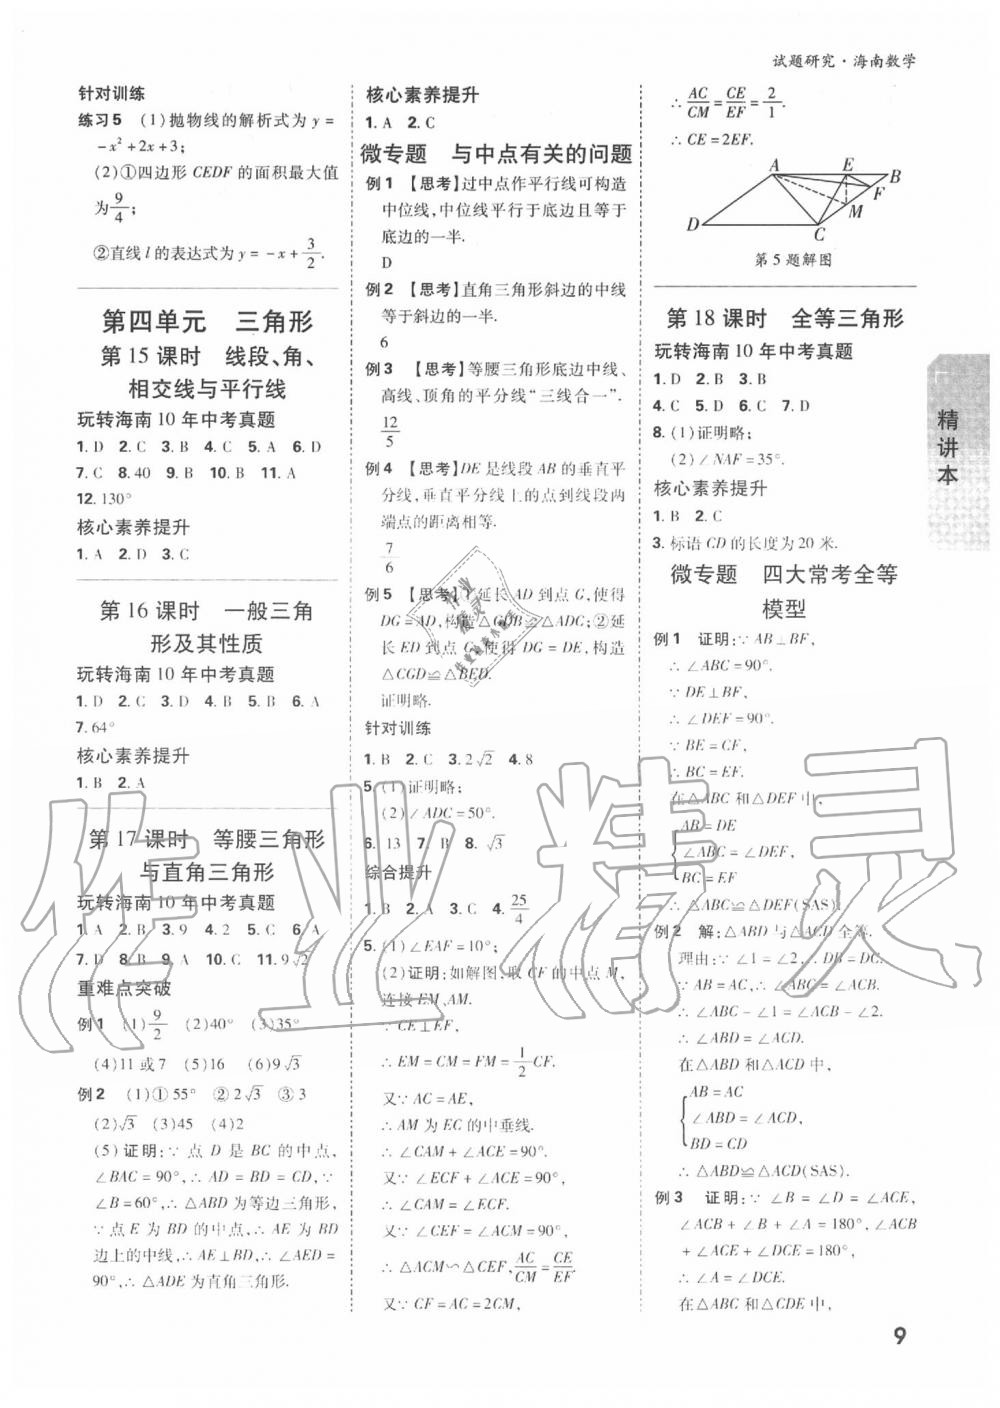 试题研究·海南数学
针对训练
练习5 (1)抛物线的解析式为 y =
-x²+2x+3;
(2)①四边形 CEDF 的面积最大值
为9/4;
②直线 l 的表达式为 y = -x+3/2.
第四单元 三角形
第 15 课时 线段、角、
相交线与平行线
玩转海南 10 年中考真题
1. D 2. C 3. B 4. C 5. A 6. D
7. C 8. 40 9. B 10. B 11. A
12. 130°
核心素养提升
1. A 2. D 3. C
第 16 课时 一般三角
形及其性质
玩转海南 10 年中考真题
1. D 2. C 3. D 4. B 5. B 6. A
7. 64°
核心素养提升
1. B 2. A
第 17 课时 等腰三角形
与直角三角形
玩转海南 10 年中考真题
1. A 2. B 3. 9 4. 2 5. C 6. A
7. D 8. B 9. A 10. C 11. 9√2
重难点突破
例1 (1)9/2 (2)40° (3)35°
(4)11 或 7 (5)16 (6)9√3
例2 (1)① 55° ② 2√3 ③ 3
(2)√3 (3)45 (4)2
(5)证明:∵ 点 D 是 BC 的中点,
∠BAC = 90°,∴ AD = BD = CD,∵
∠B = 60°,∴ △ABD 为等边三角形,
∵ 点 E 为 BD 的中点,∴ AE 为 BD
边上的中线,∴ AE⊥BD,∴ ∠AED =
90°,∴ △ADE 为直角三角形.
核心素养提升
1. A 2. C
微专题 与中点有关的问题
例1 【思考】过中点作平行线可构造
中位线,中位线平行于底边且等于
底边的一半.
D
例2 【思考】直角三角形斜边的中线
等于斜边的一半.
6
例3 【思考】等腰三角形底边中线、
高线、顶角的平分线“三线合一”.
12/5
例4 【思考】DE 是线段 AB 的垂直平
分线,垂直平分线上的点到线段两
端点的距离相等.
7/6
例5 【思考】①延长 AD 到点 G,使得
DG = AD,构造△GDB≌△ADE;②延
长 ED 到点 G,使得 DG = DE,构造
△CGD≌△BED.
证明略.
针对训练
1. B 2. C 3. 2√2 4. 8
5. (1)证明略;
(2)∠ADC = 50°.
6. 13 7. B 8. √3
综合提升
1. B 2. A 3. C 4. 25/4
5. (1)∠EAF = 10°;
(2)证明:如解图,取 CF 的中点 M,
连接 EM,AM.
∵ CE⊥EF,
∴ EM = CM = FM = 1/2 CF.
又∵ AC = AE,
∴ AM 为 EC 的中垂线.
∴ ∠CAM + ∠ACE = 90°.
又∵ ∠ECF + ∠ACE = 90°,
∴ ∠CAM = ∠ECF.
又∵ ∠CEF = ∠ACM = 90°,
∴ △ACM∽△CEF,∴ AC/CM = CE/EF.
又∵ CF = AC = 2CM,
∴ AC/CM = CE/EF = 2/1.
∴ CE = 2EF.
A E B
F
M
D C
第 5 题解图
第 18 课时 全等三角形
玩转海南 10 年中考真题
1. D 2. B 3. B
4. C 5. D 6. C 7. D
8. (1)证明略;
(2)∠NAF = 35°.
核心素养提升
1. B 2. C
3. 标语 CD 的长度为 20 米.
微专题 四大常考全等
模型
例1 证明:∵ AB⊥BF,
∴ ∠ABC = 90°.
∵ DE⊥BF,
∴ ∠DEF = 90°.
∵ BE = CF,
∴ BC = EF.
在△ABC 和△DEF 中,
AB = DE
∠ABC = ∠DEF,
BC = EF
∴ △ABC≌△DEF(SAS).
例2 解:△ABD 与△ACD 全等.
理由:∵ ∠1 = ∠2,∴ DB = DC.
∵ AB = AC,∴ ∠ABC = ∠ACB.
∴ ∠ABC - ∠1 = ∠ACB - ∠2.
∴ ∠ABD = ∠ACD.
在△ABD 和△ACD 中,
AB = AC
∠ABD = ∠ACD,
BD = CD
∴ △ABD≌△ACD(SAS).
例3 证明:∵ ∠B = ∠D = ∠ACE,
∠ACB + ∠B + ∠A = 180°,∠ACB
+ ∠ACE + ∠DCE = 180°,
∴ ∠A = ∠DCE.
在△ABC 和△CDE 中,
精讲本
9
作业精灵